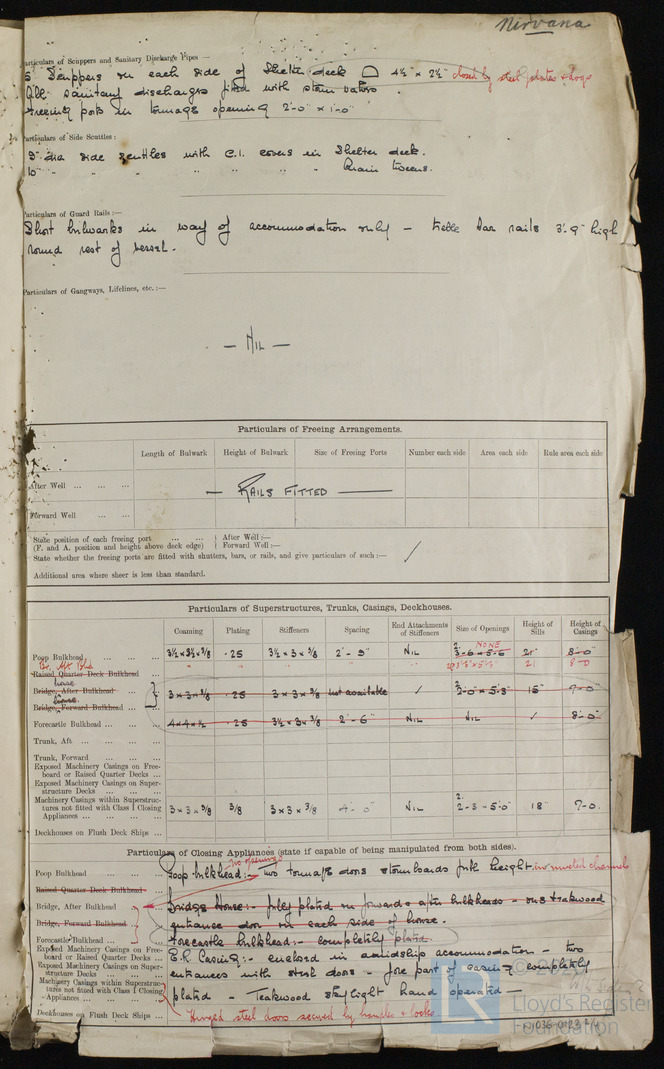 Nirvana
Particulars of Scuppers and Sanitary Discharge Pipes —
5 Scuppers on each side of Shelter deck 4½" × 2½" closed by steel plates & dogs
All sanitary discharges fitted with storm valves.
Freeing ports in tonnage opening 2'-0" × 1'-0"
Particulars of Side Scuttles:
9" dia side scuttles with C.I. covers in Shelter deck.
10" " " " " " " " tweens.
Particulars of Guard Rails:—
Short bulwarks in way of accommodation only — bar rails 3'-9" high
round rest of vessel.
Particulars of Gangways, Lifelines, etc.:—
— NIL —
Particulars of Freeing Arrangements.
Length of Bulwark Height of Bulwark Size of Freeing Ports Number each side Area each side Rule area each side
After Well ... ... ...
— RAILS FITTED —
Forward Well ... ...
State position of each freeing port ... ... After Well:—
(F. and A. position and height above deck edge) Forward Well:—
State whether the freeing ports are fitted with shutters, bars, or rails, and give particulars of such:— ✓
Additional area where sheer is less than standard.
Particulars of Superstructures, Trunks, Casings, Deckhouses.
Coaming Plating Stiffeners Spacing End Attachments of Stiffeners Size of Openings Height of Sills Height of Casings
NONE
Poop Bulkhead ... ... ... 3½ × 3½ × 3/8 .25 3½ × 3 × 3/8 2'-9" NIL 2. 3-6 × 5-6 21" 8-0"
Br. Aft Bhd
Raised Quarter Deck Bulkhead ... " " 21 8-0
house
Bridge, After Bulkhead ... 3 × 3 × 3/8 .25 3 × 3 × 3/8 not available ✓ 2. 2-0" × 5-3" 15" 7-0"
house
Bridge, Forward Bulkhead ...
Forecastle Bulkhead ... ... 4 × 4 × ½ .25 3½ × 3 × 3/8 2'-6" NIL NIL ✓ 8'-0"
Trunk, Aft ... ... ...
Trunk, Forward ... ...
Exposed Machinery Casings on Free-
board or Raised Quarter Decks ...
Exposed Machinery Casings on Super-
structure Decks ... ... ...
Machinery Casings within Superstruc-
tures not fitted with Class I Closing
Appliances ... ... ... 3 × 3 × 3/8 3/8 3 × 3 × 3/8 4'-0" NIL 2. 2-3 - 5'0" 18" 7-0.
Deckhouses on Flush Deck Ships ...
Particulars of Closing Appliances (state if capable of being manipulated from both sides).
no openings
Poop Bulkhead Poop bulkhead:— two tonnage doors storm boards full height in riveted channels
Raised Quarter Deck Bulkhead
Bridge, After Bulkhead Bridge House:— fully plated on forward & after bulkheads — one teakwood
Bridge, Forward Bulkhead entrance door on each side of house.
Forecastle Bulkhead Forecastle bulkhead:— completely plated.
Exposed Machinery Casings on Free-
board or Raised Quarter Decks E.R. Casing:— enclosed in amidship accommodation — two
Exposed Machinery Casings on Super-
structure Decks entrances with steel doors — fore part of casing completely
Machinery Casings within Superstruc-
tures not fitted with Class I Closing
Appliances plated — Teakwood skylight hand operated
Deckhouses on Flush Deck Ships Hinged steel doors secured by handles & locks
Lloyd's Register
Foundation